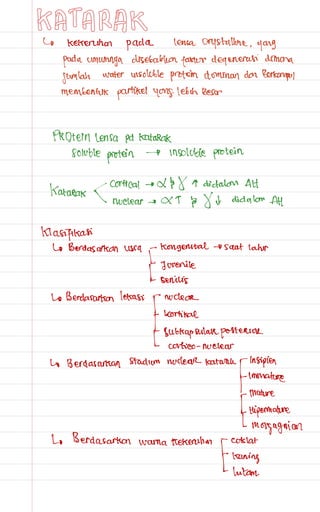 KATARAK
↳ kekeruhan pada lensa crystalline, yang
pada umumnya disebabkan faktor degenerasi dimana
jumlah water insoluble protein dominan dan berkumpul
membentuk partikel yang lebih besar
PROtein lensa pd katarak
soluble protein → insoluble protein
Katarak
cortical → α β γ ↑ didalam AH
nuclear → α ↑ β γ ↓ didalam AH
Klasifikasi
↳ Berdasarkan usia
kongenital → saat lahir
Juvenile
Senilis
↳ Berdasarkan lokasi
nuclear
kortikal
Subkapsular posterior
cortico-nuclear
↳ Berdasarkan Stadium nuclear katarak
Insipien
Immature
Mature
Hipermature
Morgagnian
↳ Berdasarkan warna kekeruhan
coklat
kuning
hitam